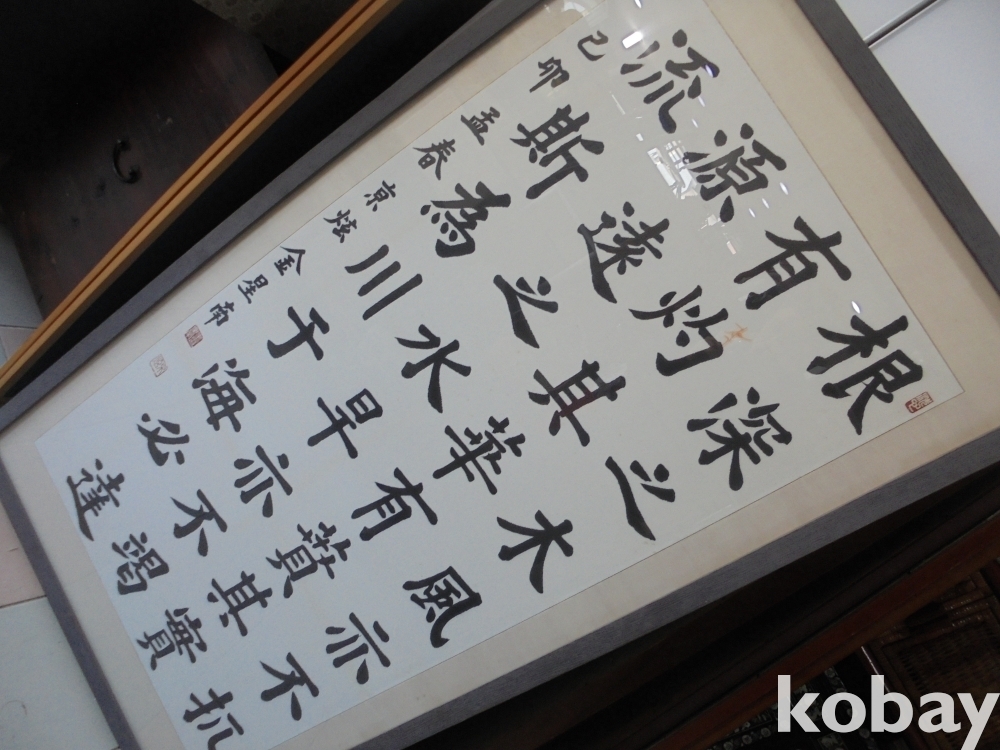 根深之木風亦不扤
有灼其華有蕡其實
源遠之水旱亦不竭
流斯為川于海必達
己卯孟春京炫金星南
kobay